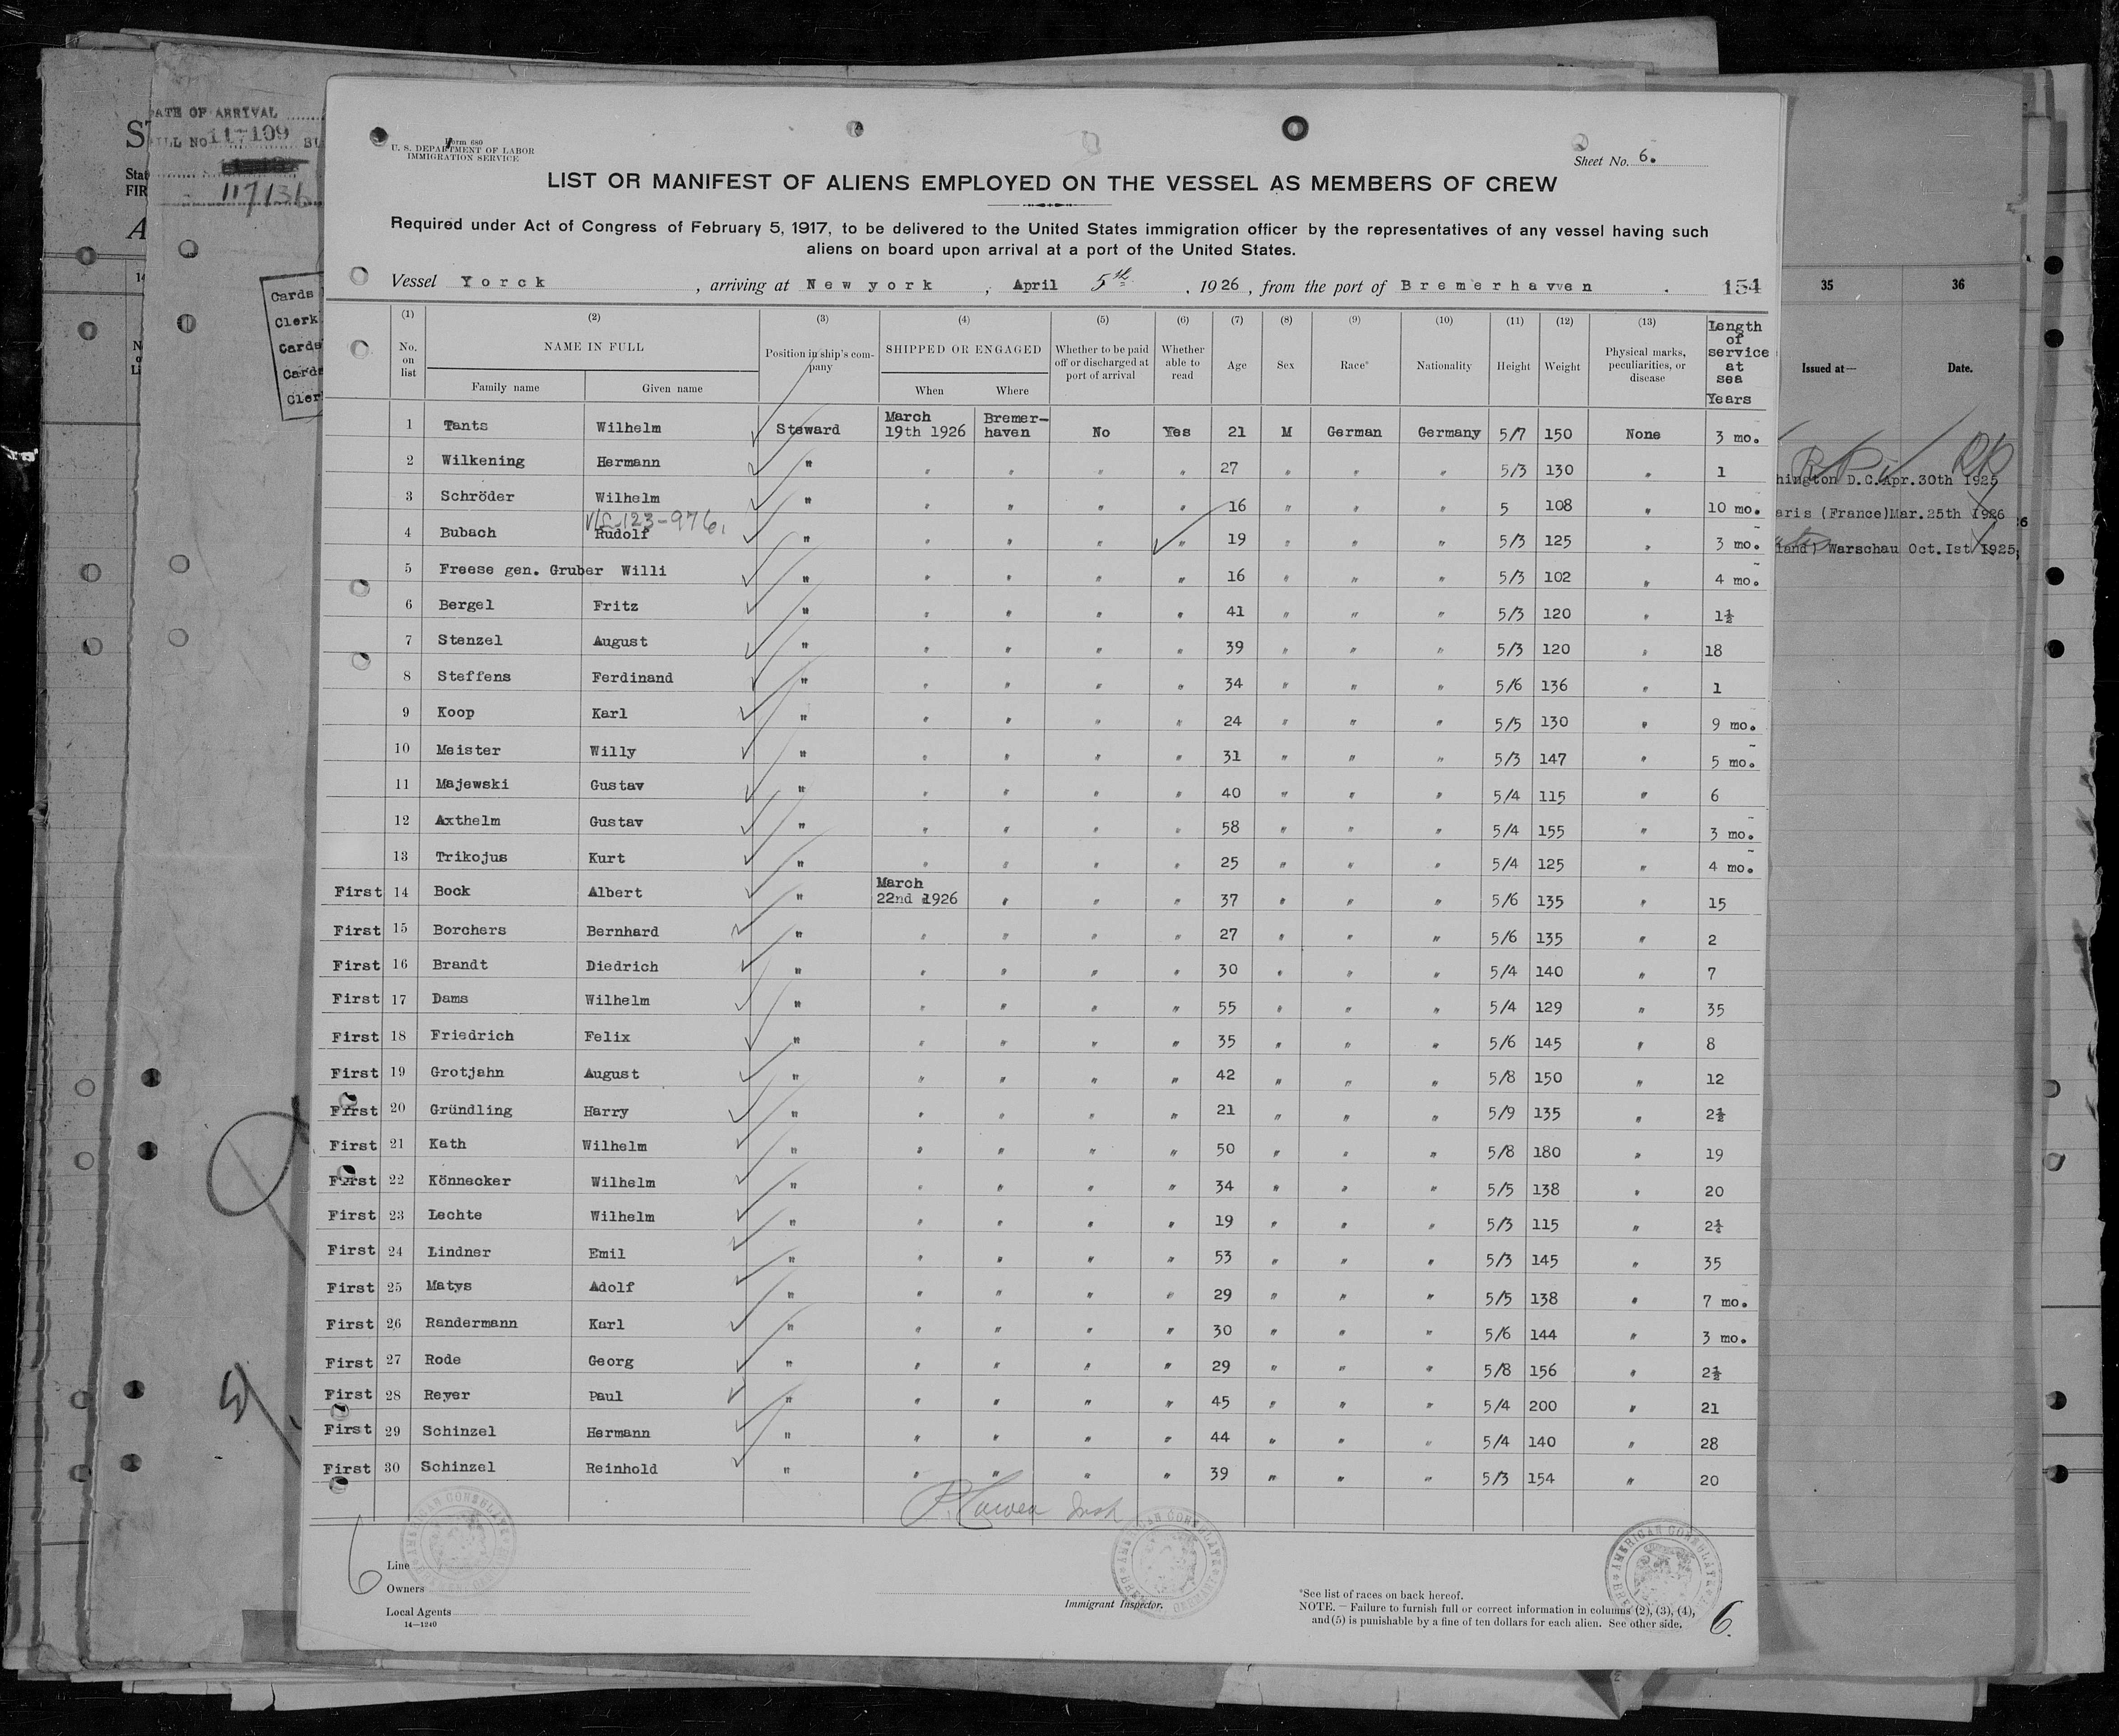 DATE OF ARRIVAL
ILL NO 117109
117136
Cards
Clerk
Cards
Cards
Cler
Form 680
U. S. DEPARTMENT OF LABOR
IMMIGRATION SERVICE
Sheet No. 6.
LIST OR MANIFEST OF ALIENS EMPLOYED ON THE VESSEL AS MEMBERS OF CREW
Required under Act of Congress of February 5, 1917, to be delivered to the United States immigration officer by the representatives of any vessel having such
aliens on board upon arrival at a port of the United States.
Vessel Yorck , arriving at New york , April 5th , 1926 , from the port of Bremerhaven . 154
(1) (2) (3) (4) (5) (6) (7) (8) (9) (10) (11) (12) (13) Length of service at sea Years
No. on list NAME IN FULL Position in ship's company SHIPPED OR ENGAGED Whether to be paid off or discharged at port of arrival Whether able to read Age Sex Race* Nationality Height Weight Physical marks, peculiarities, or disease
Family name Given name When Where
1 Tants Wilhelm Steward March 19th 1926 Bremerhaven No Yes 21 M German Germany 5/7 150 None 3 mo.
2 Wilkening Hermann " " " " " 27 " " " 5/3 130 " 1
3 Schröder Wilhelm " " " " " 16 " " " 5 108 " 10 mo.
V/L 123-976.
4 Bubach Rudolf " " " " " 19 " " " 5/3 125 " 3 mo.
5 Freese gen. Gruber Willi " " " " " 16 " " " 5/3 102 " 4 mo.
6 Bergel Fritz " " " " " 41 " " " 5/3 120 " 1½
7 Stenzel August " " " " " 39 " " " 5/3 120 " 18
8 Steffens Ferdinand " " " " " 34 " " " 5/6 136 " 1
9 Koop Karl " " " " " 24 " " " 5/5 130 " 9 mo.
10 Meister Willy " " " " " 31 " " " 5/3 147 " 5 mo.
11 Majewski Gustav " " " " " 40 " " " 5/4 115 " 6
12 Axthelm Gustav " " " " " 58 " " " 5/4 155 " 3 mo.
13 Trikojus Kurt " " " " " 25 " " " 5/4 125 " 4 mo.
First 14 Bock Albert " March 22nd 1926 " " " 37 " " " 5/6 135 " 15
First 15 Borchers Bernhard " " " " " 27 " " " 5/6 135 " 2
First 16 Brandt Diedrich " " " " " 30 " " " 5/4 140 " 7
First 17 Dams Wilhelm " " " " " 55 " " " 5/4 129 " 35
First 18 Friedrich Felix " " " " " 35 " " " 5/6 145 " 8
First 19 Grotjahn August " " " " " 42 " " " 5/8 150 " 12
First 20 Gründling Harry " " " " " 21 " " " 5/9 135 " 2½
First 21 Kath Wilhelm " " " " " 50 " " " 5/8 180 " 19
First 22 Könnecker Wilhelm " " " " " 34 " " " 5/5 138 " 20
First 23 Lechte Wilhelm " " " " " 19 " " " 5/3 115 " 2¼
First 24 Lindner Emil " " " " " 53 " " " 5/3 145 " 35
First 25 Matys Adolf " " " " " 29 " " " 5/5 138 " 7 mo.
First 26 Randermann Karl " " " " " 30 " " " 5/6 144 " 3 mo.
First 27 Rode Georg " " " " " 29 " " " 5/8 156 " 2½
First 28 Reyer Paul " " " " " 45 " " " 5/4 200 " 21
First 29 Schinzel Hermann " " " " " 44 " " " 5/4 140 " 28
First 30 Schinzel Reinhold " " " " " 39 " " " 5/3 154 " 20
6
Line
Owners
Local Agents
14—1240
Immigrant Inspector.
AMERICAN CONSULATE
AMERICAN CONSULATE
AMERICAN CONSULATE
*See list of races on back hereof.
NOTE. — Failure to furnish full or correct information in columns (2), (3), (4),
and (5) is punishable by a fine of ten dollars for each alien. See other side.
6.
35 36
Issued at— Date.
hington D.C. Apr. 30th 1925
aris (France) Mar. 25th 1926
land) Warschau Oct. Ist 1925;